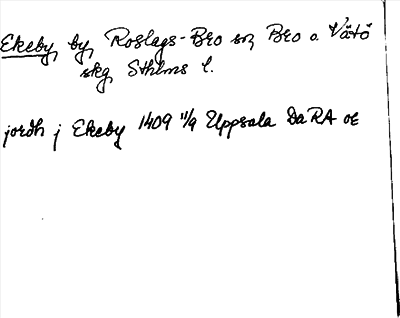 Ekeby, by, Roslags-Bro sn, Bro o. Vätö
skg Sthlms l.
jordh j Ekeby 1409 11/9 Uppsala DaRA or